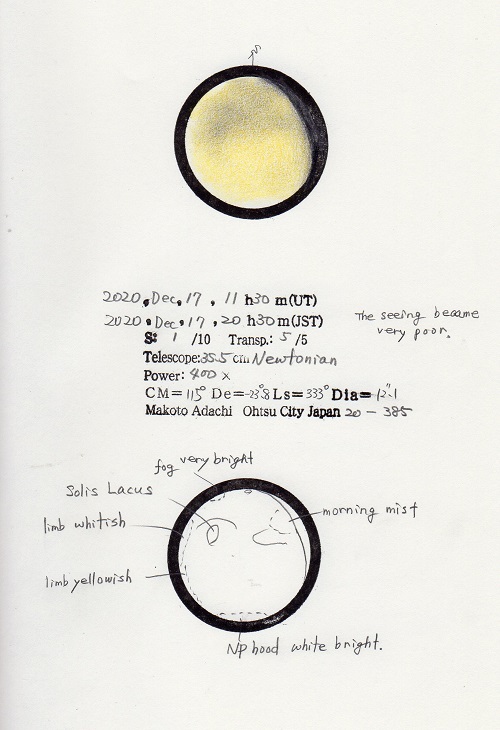 N
2020, Dec, 17, 11 h30 m(UT)
2020, Dec, 17, 20 h30 m(JST)
The seeing became
very poor.
S: 1 /10 Transp.: 5 /5
Telescope:35.5 cm Newtonian
Power: 400 x
CM=115° De=-23°.8 Ls=333° Dia=12".1
Makoto Adachi Ohtsu City Japan 20 - 385
fog very bright
Solis Lacus
limb whitish
morning mist
limb yellowish
NP hood white bright.